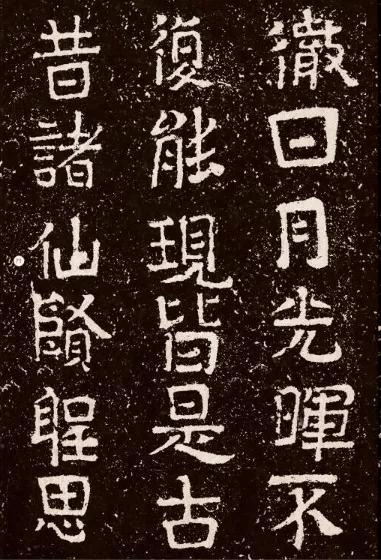 徹日月光暉不
復能現皆是古
昔諸仙賢聖思